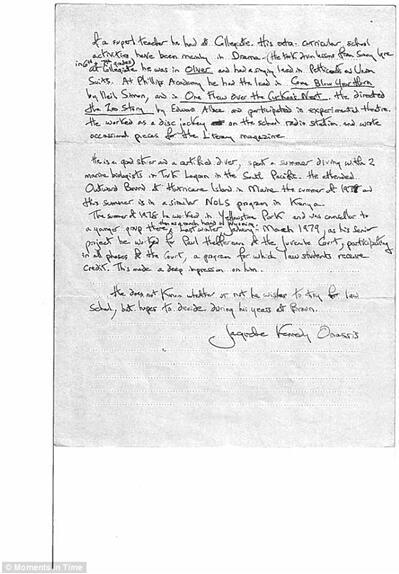 of a superb teacher he had at Collegiate. His extra-curricular school
activities have been mainly in Drama - (He took drum lessons from
in 6th + 7th grades)
at Collegiate he was in Oliver and had a singing lead in Petticoats and Union
Suits. At Phillips Academy he had the lead in Come Blow Your Horn
by Neil Simon, and in One Flew Over the Cuckoo's Nest. He directed
the Zoo Story by Edward Albee and participated in experimental theatre.
He worked as a disc jockey on the school radio station and wrote
occasional pieces for the Literary magazine
He is a good skier and a certified diver, spent a summer diving with 2
marine biologists in Truk Lagoon in the South Pacific. He attended
Outward Bound at Hurricane Island in Maine the summer of 1977 and
this summer is in a similar NOLS program in Kenya.
The summer of 1978 he worked in Yellowstone Park and was counsellor to
then as a ranch hand in Wyoming
a younger group there, Last winter, January - March 1979, as his senior
project he worked for Paul Heffernan at the Juvenile Court, participating
in all phases of the Court, a program for which law students receive
credit. This made a deep impression on him.
He does not know whether or not he wishes to try for law
School, but hopes to decide during his years at Brown.
Jacqueline Kennedy Onassis
© Moments in Time